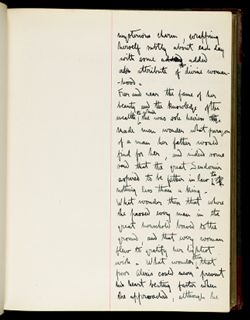 mysterious charm, wrapping
herself subtly about each day
with some added
attribute of divine woman-
-hood.
Far and near the fame of her
beauty and the knowledge of the
wealth to which she was sole heiress
made men wonder what paragon
of a man her father would
find for her, and indeed some
said that the great Seudamore
aspired to be father in law to
nothing less than a King.
What wonder then that where
she passed every man in the
great household bowed to the
ground, and that every woman
flew to gratify her lightest
wish. What wonder that
poor Alexis could never prevent
his heart beating faster when
she approached, although he